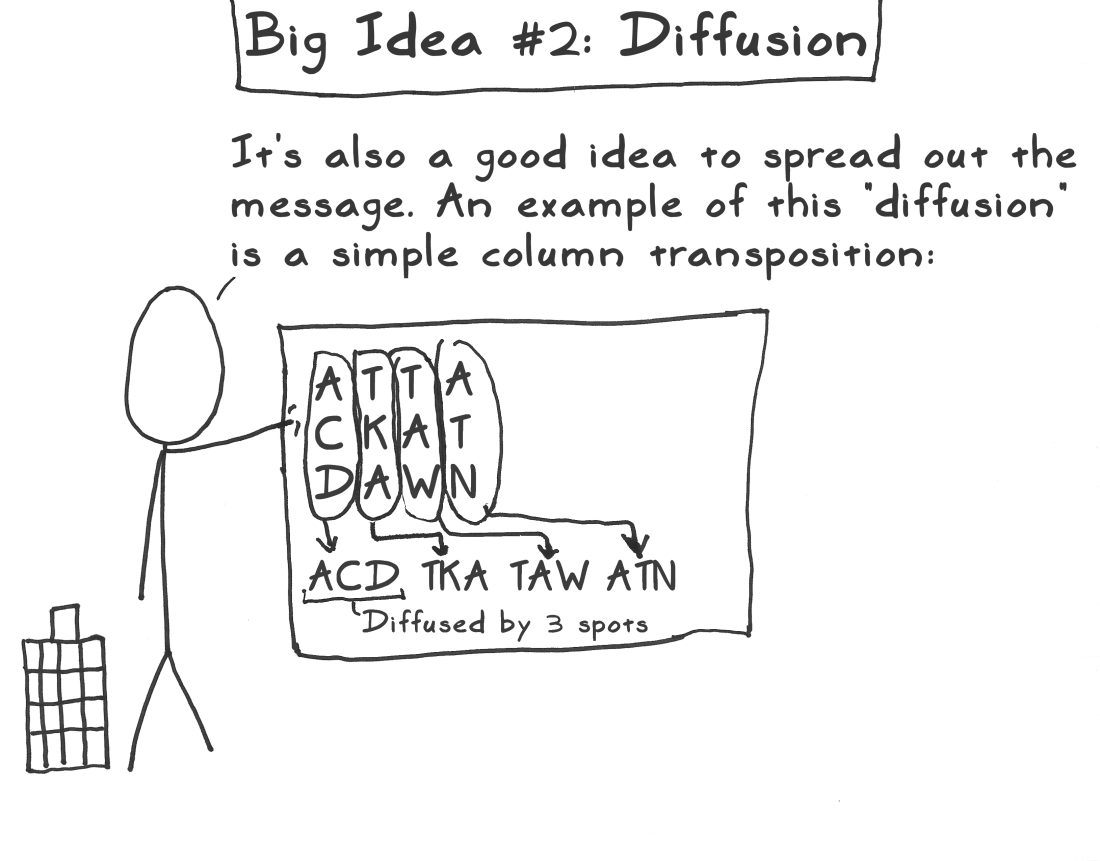 Big Idea #2: Diffusion
It's also a good idea to spread out the
message. An example of this "diffusion"
is a simple column transposition:
A T T A
C K A T
D A W N
ACD TKA TAW ATN
Diffused by 3 spots